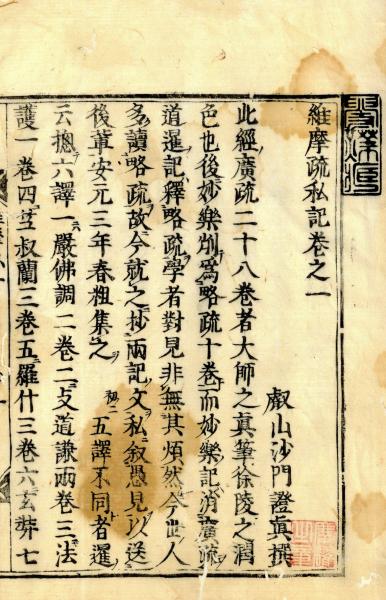 維摩疏私記卷之一
叡山沙門證眞撰
此經廣疏二十八卷者大師之眞筆徐陵之潤
色也後妙樂刪爲略疏十卷而妙樂記消廣疏
道暹記釋略疏學者對見非無其煩然今世人
多讀略疏故今就之抄兩記文私叙愚見以送
後輩安元三年春粗集之 五譯不同者暹
云摠六譯一嚴佛調二卷二支道謙兩卷三法
護一卷四竺叔蘭三卷五羅什三卷六玄奘七